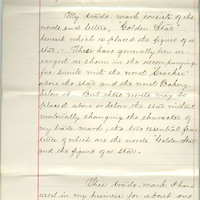 My trade-mark consists of the
words and letters, "Golden Star"
beneath which is placed the figure of a
star.- These have generally been ar-
ranged as shown in the accompanying
fac-simile with the word Cracker
above the star and the word Bakery
below it. But these words may be
placed above or below the star without
materially changing the character of
my trade mark, the two essential fea-
tures of which are the words "Golden Star"
and the figure of a star.
This trade-mark I have
used in my business for about one